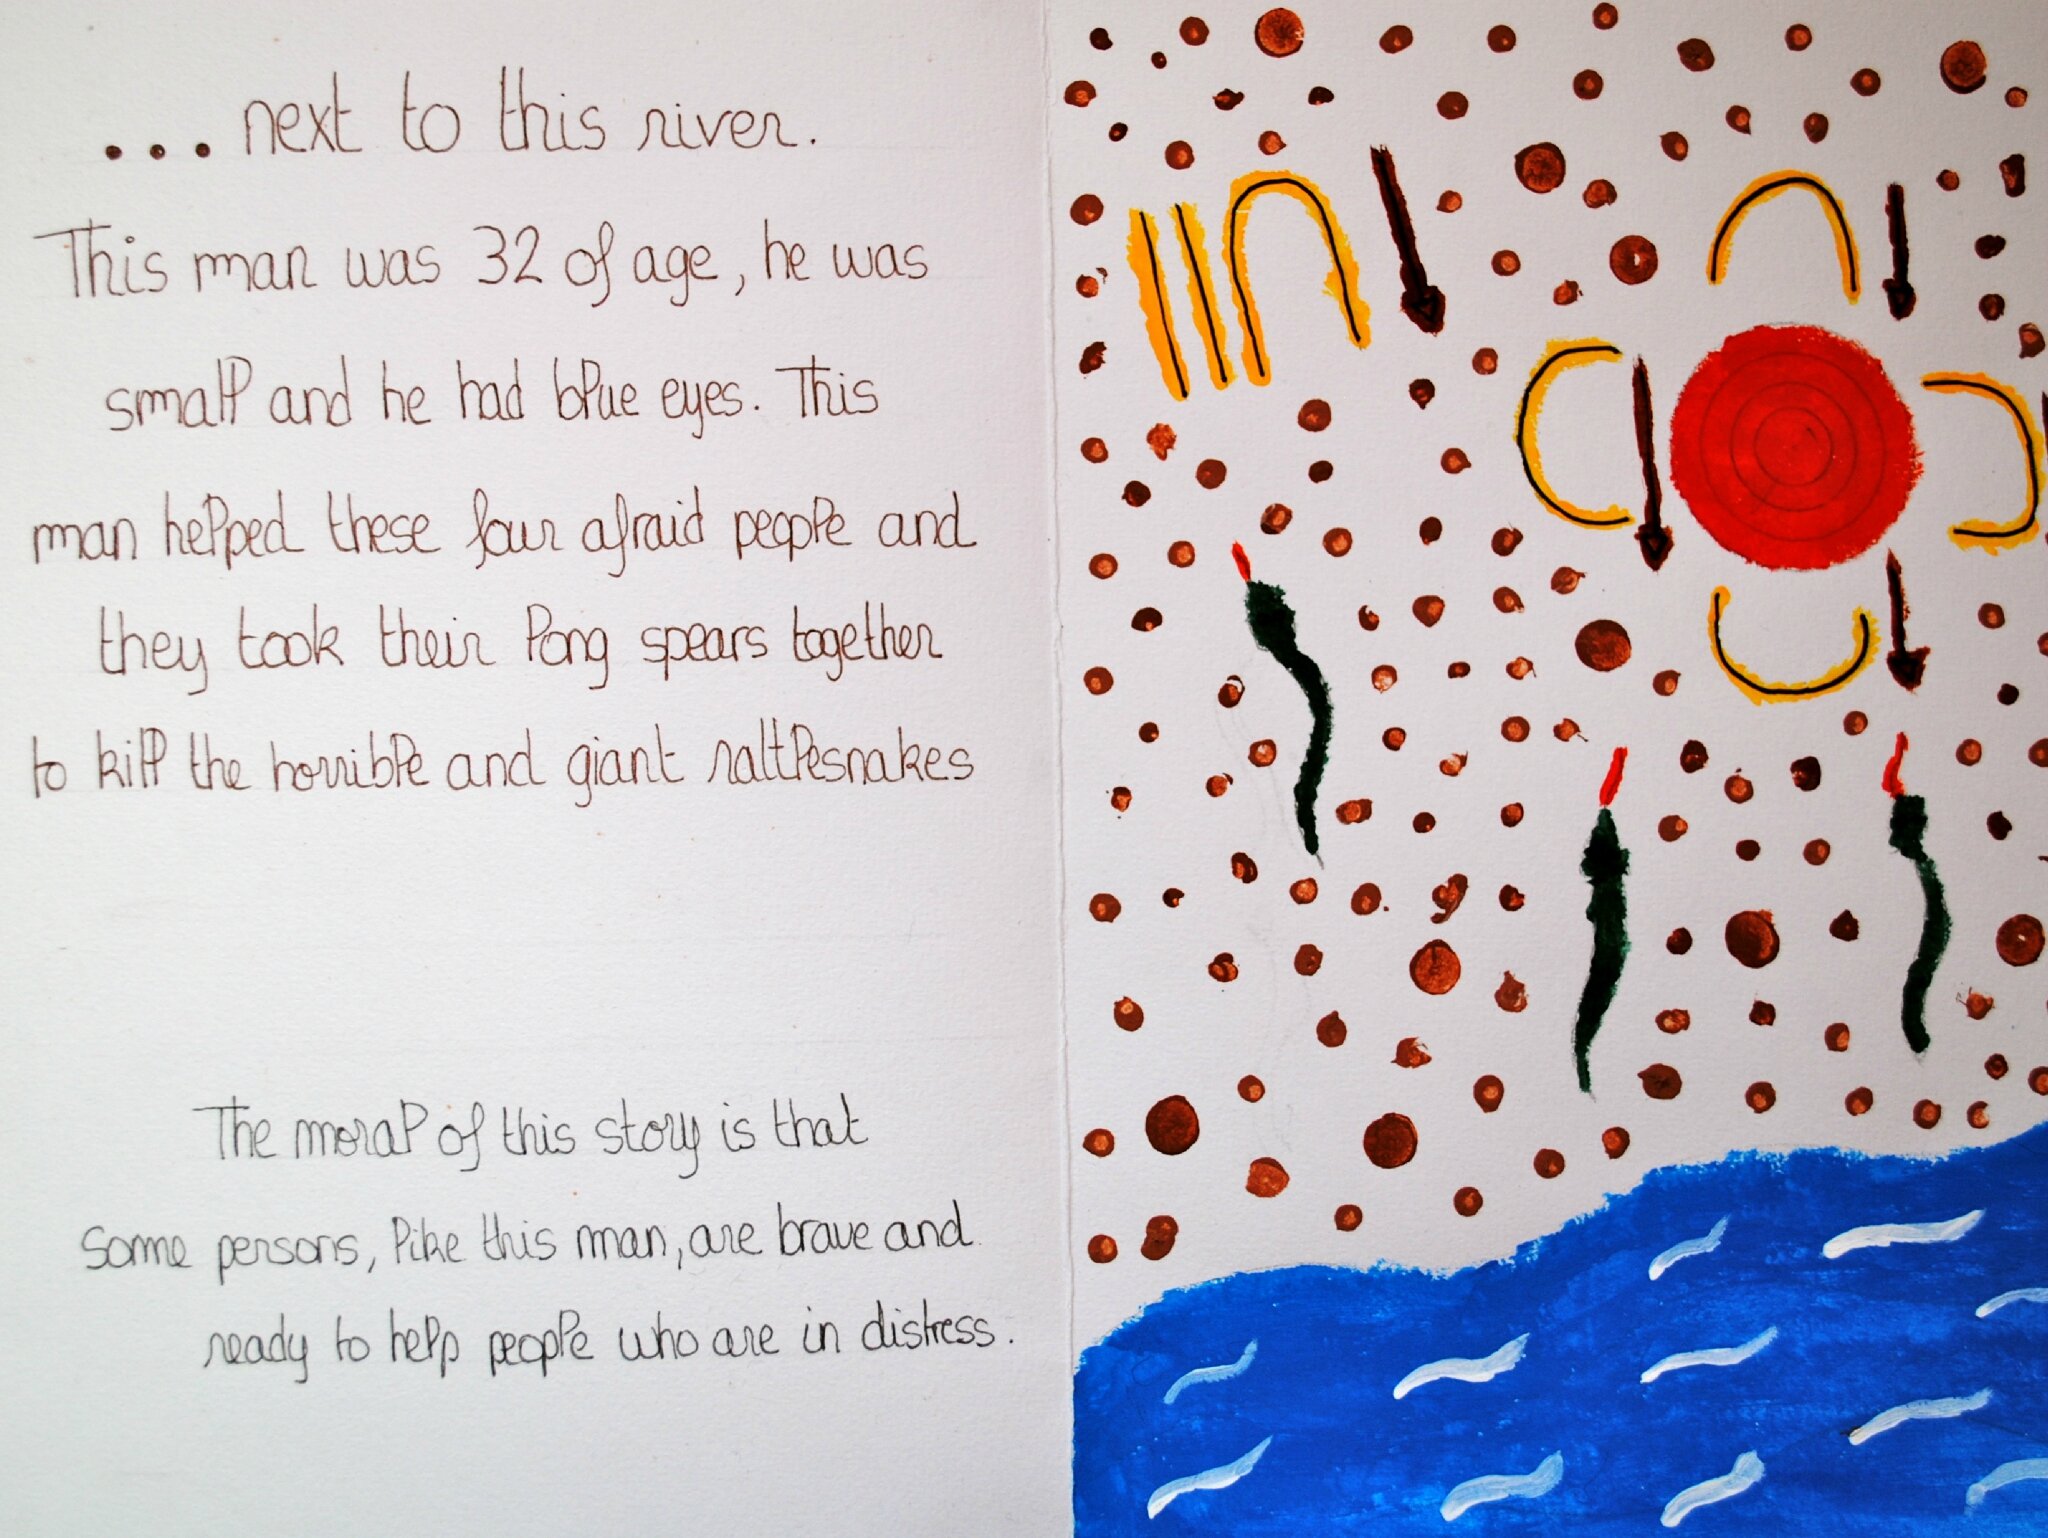 ... next to this river.
This man was 32 of age, he was
small and he had blue eyes. This
man helped these four afraid people and
they took their long spears together
to kill the horrible and giant rattlesnakes
The moral of this story is that
some persons, like this man, are brave and
ready to help people who are in distress.